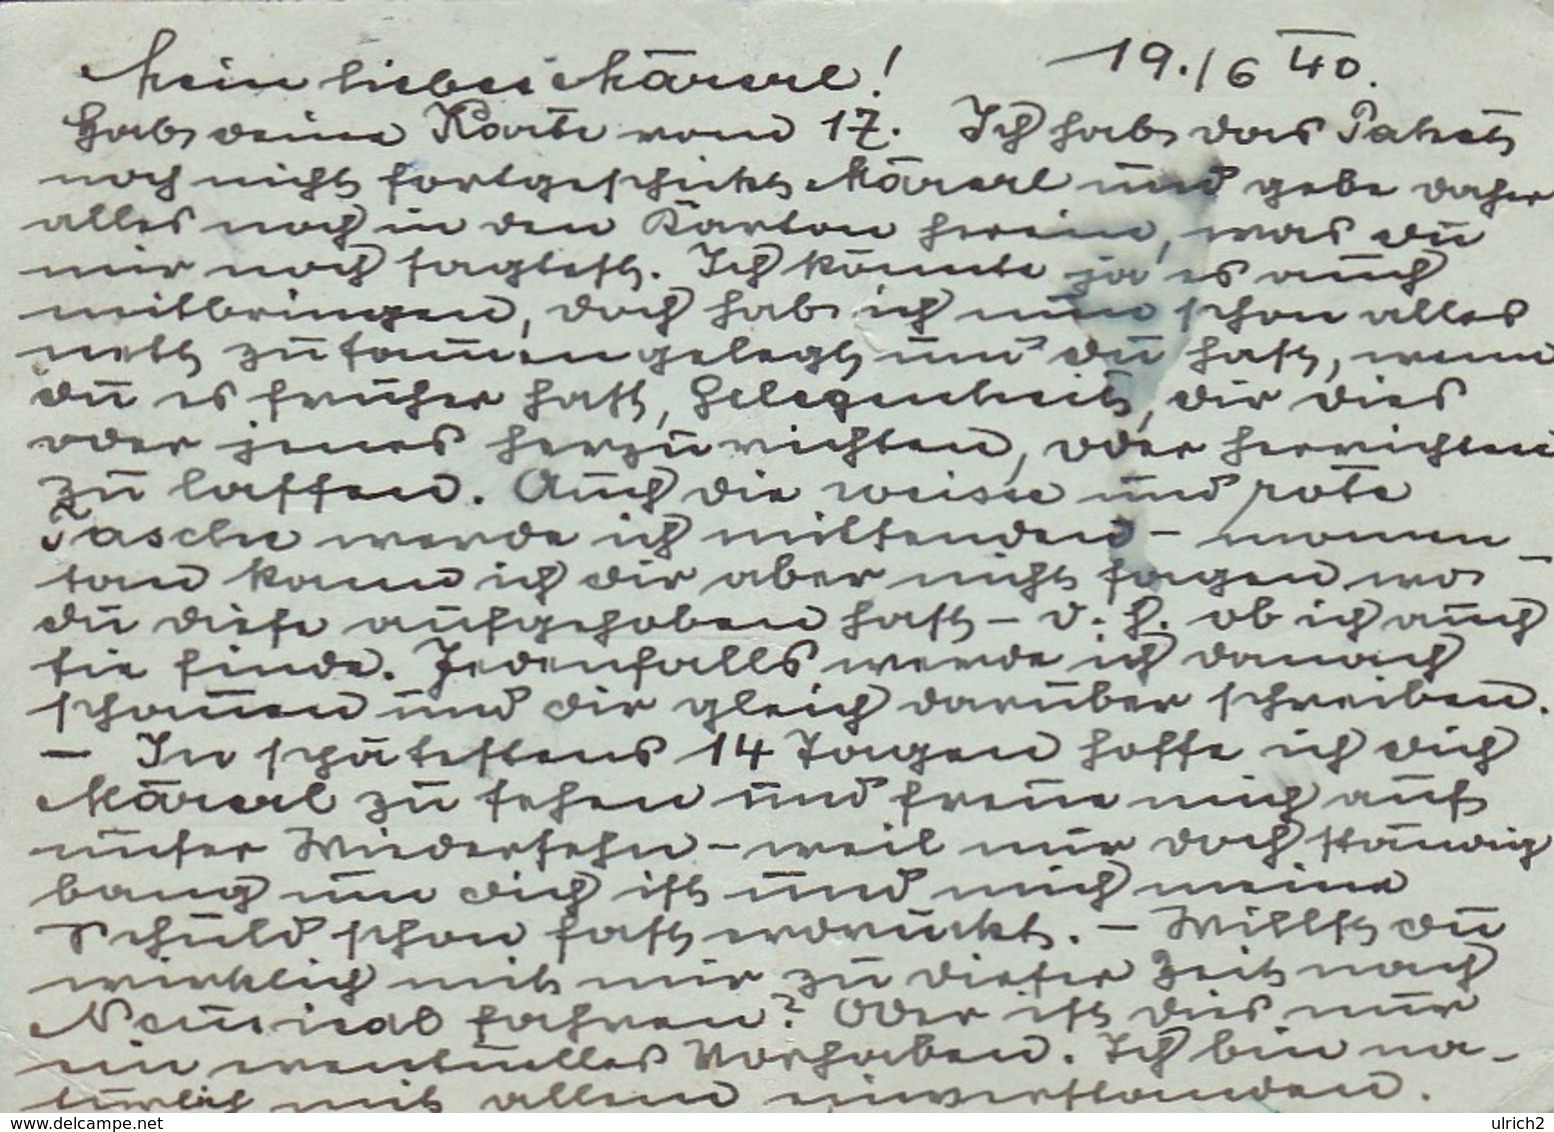 Mein liebes Märerl! 19./6 40.
Hab deine Karte vom 17. Ich hab das Paket
noch nicht fortgeschickt Märerl und gebe daher
alles noch in den Karton herein, was du
mir noch sagtest. Ich könnte ja es auch
mitbringen, doch hab ich nun schon alles
nett zusammengelegt und du hast, wenn
du es früher hast, Gelegenheit, dir dies
oder jenes herzurichten, oder herrichten
zu lassen. Auch die weisse und rote
Tasche werde ich mitsenden – momen-
tan kann ich dir aber nicht sagen wo
du diese aufgehoben hast – d. h. ob ich auch
sie finde. Jedenfalls werde ich danach
schauen und dir gleich darüber schreiben.
– In spätestens 14 Tagen hoffe ich dich
Märerl zu sehen und freue mich auf
unser Wiedersehn – weil mir doch ständig
bang um dich ist und mich meine
Schuld schon fast erdrückt. – Willst du
wirklich mit mir zu dieser Zeit nach
fahren? Oder ist dies nur
ein eventuelles Vorhaben. Ich bin na-
türlich mit allem einverstanden.
www.delcampe.net ulrich2